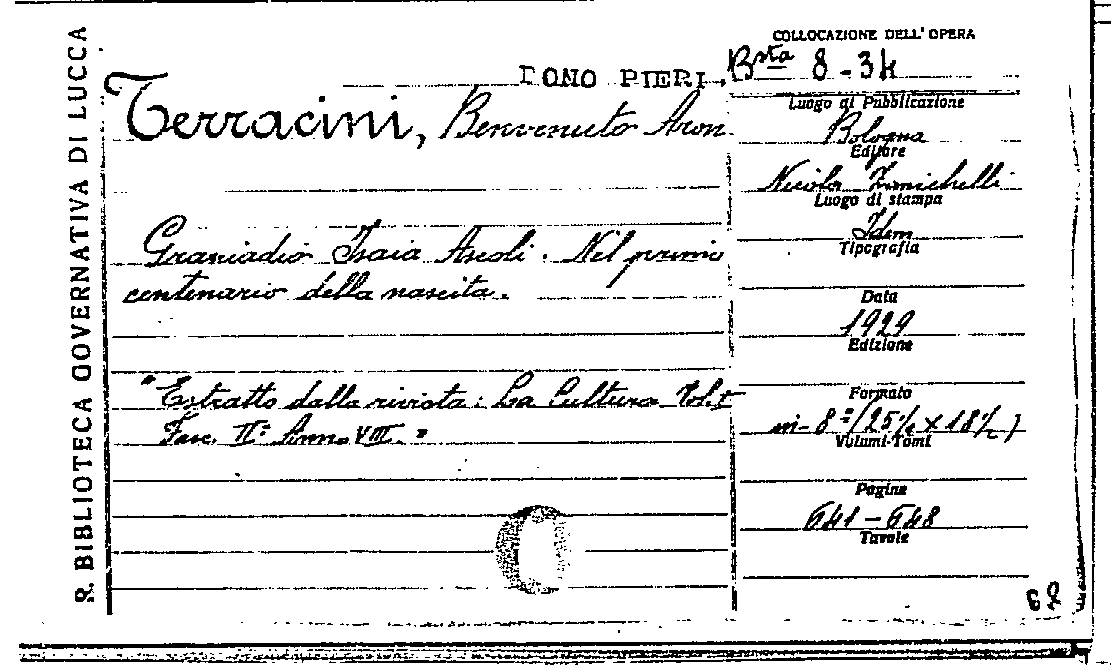 R. BIBLIOTECA GOVERNATIVA DI LUCCA
DONO PIERI.
Terracini, Benvenuto Aron.
Graziadio Isaia Ascoli. Nel primo
centenario della nascita.
"Estratto dalla rivista: La Cultura Vol. I
Fasc. IIº Anno VIII."
COLLOCAZIONE DELL'OPERA
Bsta 8-34
Luogo di Pubblicazione
Bologna
Editore
Nicola Zanichelli
Luogo di stampa
Idem
Tipografia
Data
1929
Edizione
Formato
in-8º (25½ x 18½)
Volumi-Tomi
Pagine
641-648
Tavole